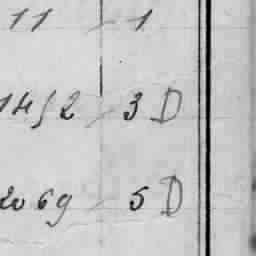 11 1
1452 3 D
2069 5 D